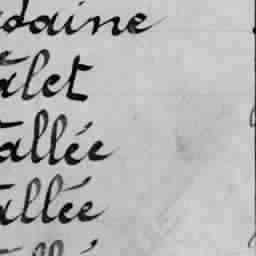 daine
alet
allée
allée